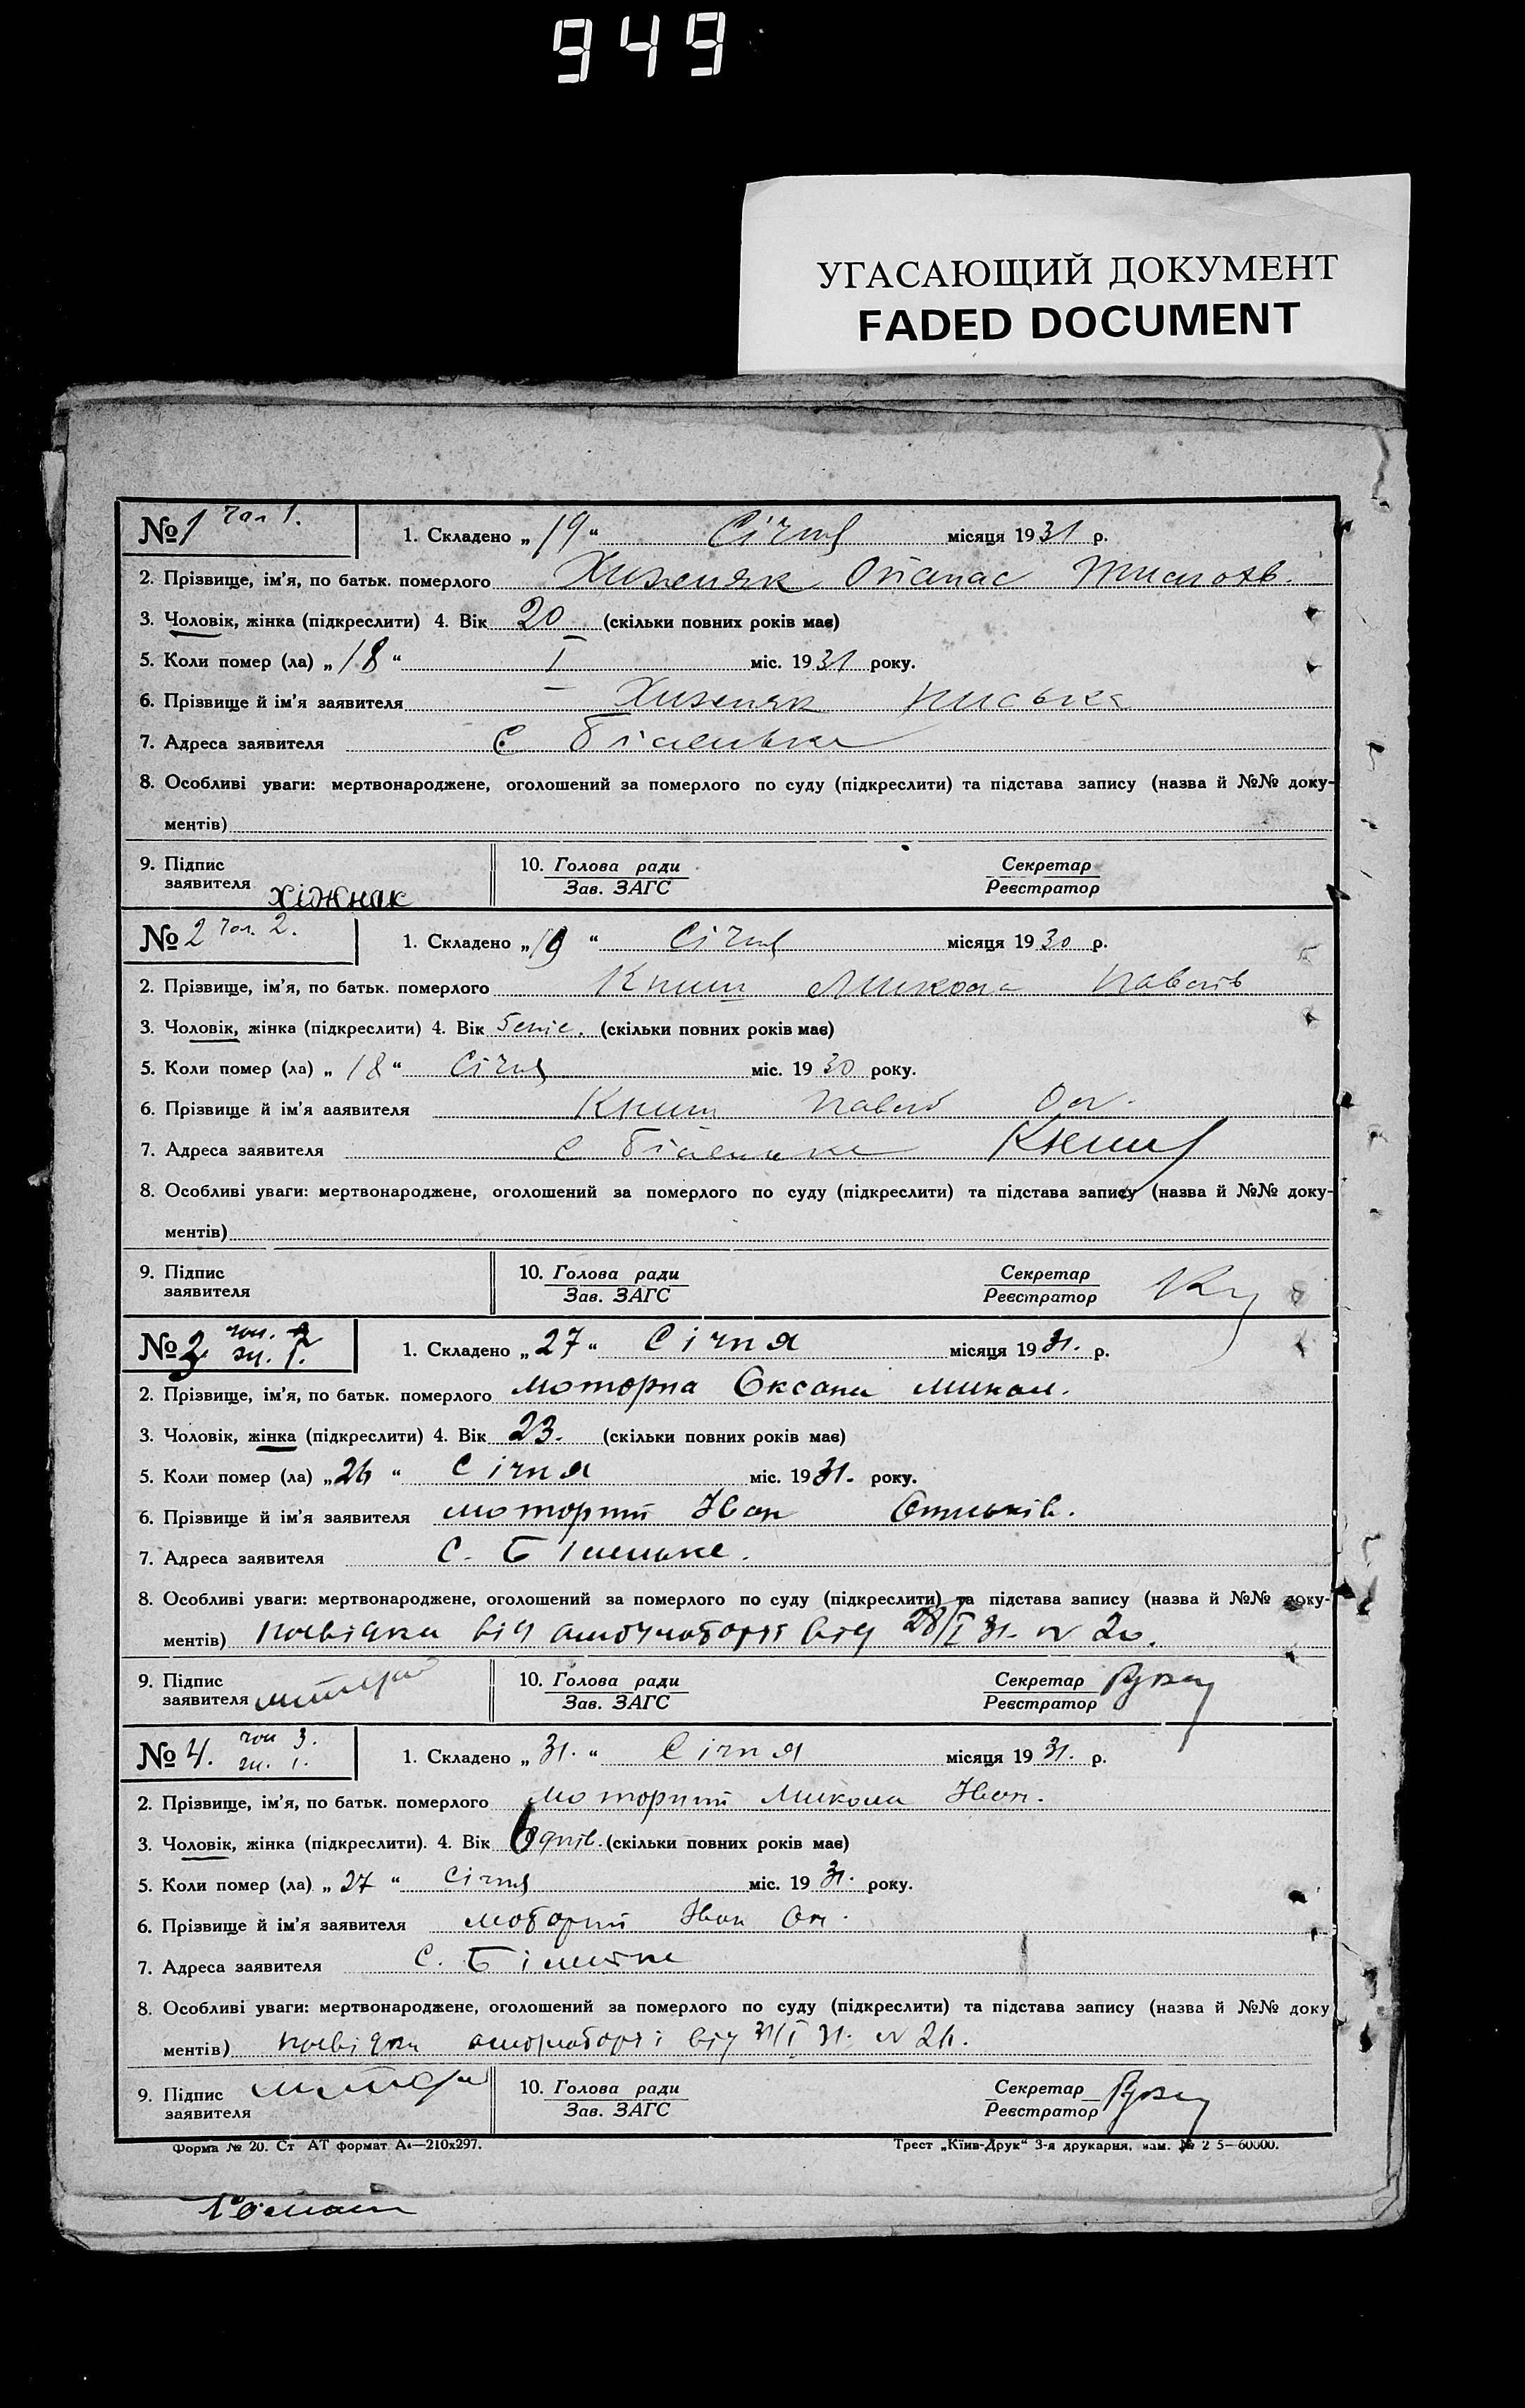 949
УГАСАЮЩИЙ ДОКУМЕНТ
FADED DOCUMENT
№ 1 чол 1.
1. Складено „ 19 “ Січня місяця 1931 р.
2. Прізвище, ім'я, по батьк. померлого Хиженяк Опанас
3. Чоловік, жінка (підкреслити) 4. Вік 20 (скільки повних років має)
5. Коли помер (ла) „ 18 “ I міс. 1931 року.
6. Прізвище й ім'я заявителя Хиженяк
7. Адреса заявителя с
8. Особливі уваги: мертвонароджене, оголошений за померлого по суду (підкреслити) та підстава запису (назва й №№ доку-
ментів)
9. Підпис заявителя хіжнак
10. Голова ради Зав. ЗАГС
Секретар Реєстратор
№ 2 чол. 2.
1. Складено „ 19 “ Січня місяця 1930 р.
2. Прізвище, ім'я, по батьк. померлого Книш Микола Павлів
3. Чоловік, жінка (підкреслити) 4. Вік 5 (скільки повних років має)
5. Коли помер (ла) „ 18 “ Січня міс. 1930 року.
6. Прізвище й ім'я ааявителя Книш Павло
7. Адреса заявителя с Книш
8. Особливі уваги: мертвонароджене, оголошений за померлого по суду (підкреслити) та підстава запису (назва й №№ доку-
ментів)
9. Підпис заявителя
10. Голова ради Зав. ЗАГС
Секретар Реєстратор
№ 3 чол. 2 жі. 1.
1. Складено „ 27 “ Січня місяця 1931. р.
2. Прізвище, ім'я, по батьк. померлого Моторна Оксана Микол.
3. Чоловік, жінка (підкреслити) 4. Вік 23. (скільки повних років має)
5. Коли помер (ла) „ 26 “ Січня міс. 1931. року.
6. Прізвище й ім'я заявителя Моторний Іван
7. Адреса заявителя С.
8. Особливі уваги: мертвонароджене, оголошений за померлого по суду (підкреслити) та підстава запису (назва й №№ доку-
ментів) посвідка від амбулаторії від 28/I 31. №
9. Підпис заявителя
10. Голова ради Зав. ЗАГС
Секретар Реєстратор
№ 4. чол 3. жі. 1.
1. Складено „ 31. “ Січня місяця 1931. р.
2. Прізвище, ім'я, по батьк. померлого Моторний Микола Іван.
3. Чоловік, жінка (підкреслити). 4. Вік 6 днів. (скільки повних років має)
5. Коли помер (ла) „ 27 “ Січня міс. 1931. року.
6. Прізвище й ім'я заявителя Моторний Іван
7. Адреса заявителя С.
8. Особливі уваги: мертвонароджене, оголошений за померлого по суду (підкреслити) та підстава запису (назва й №№ доку
ментів) посвідка амбулаторії від 31/I 31. №
9. Підпис заявителя
10. Голова ради Зав. ЗАГС
Секретар Реєстратор
Форма № 20. Ст АТ формат А4—210х297.
Трест „Київ-Друк“ 3-я друкарня,